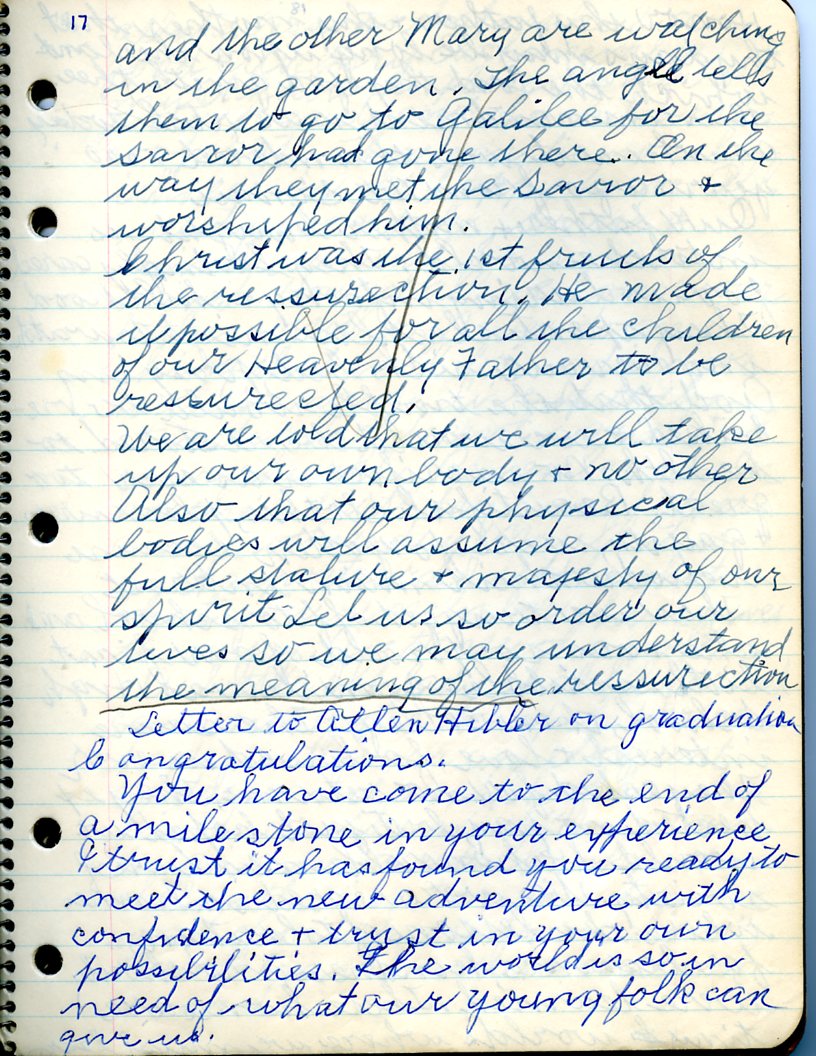 17
and the other Mary are watching
in the garden. The angel tells
them to go to Galilee for the
Savior had gone there. On the
way they met the Savior +
worshiped him.
Christ was the 1st fruits of
the ressurection. He made
it possible for all the children
of our Heavenly Father to be
ressurected.
We are told that we will take
up our own body + no other
Also that our physical
bodies will assume the
full stature + majesty of our
spirit. Let us so order our
lives so we may understand
the meaning of the ressurection
Letter to Allen Hibler on graduation
Congratulations.
You have come to the end of
a mile stone in your experience
I trust it has found you ready to
meet the new adventure with
confidence + trust in your own
possibilities. The world is so in
need of what our young folk can
give us.